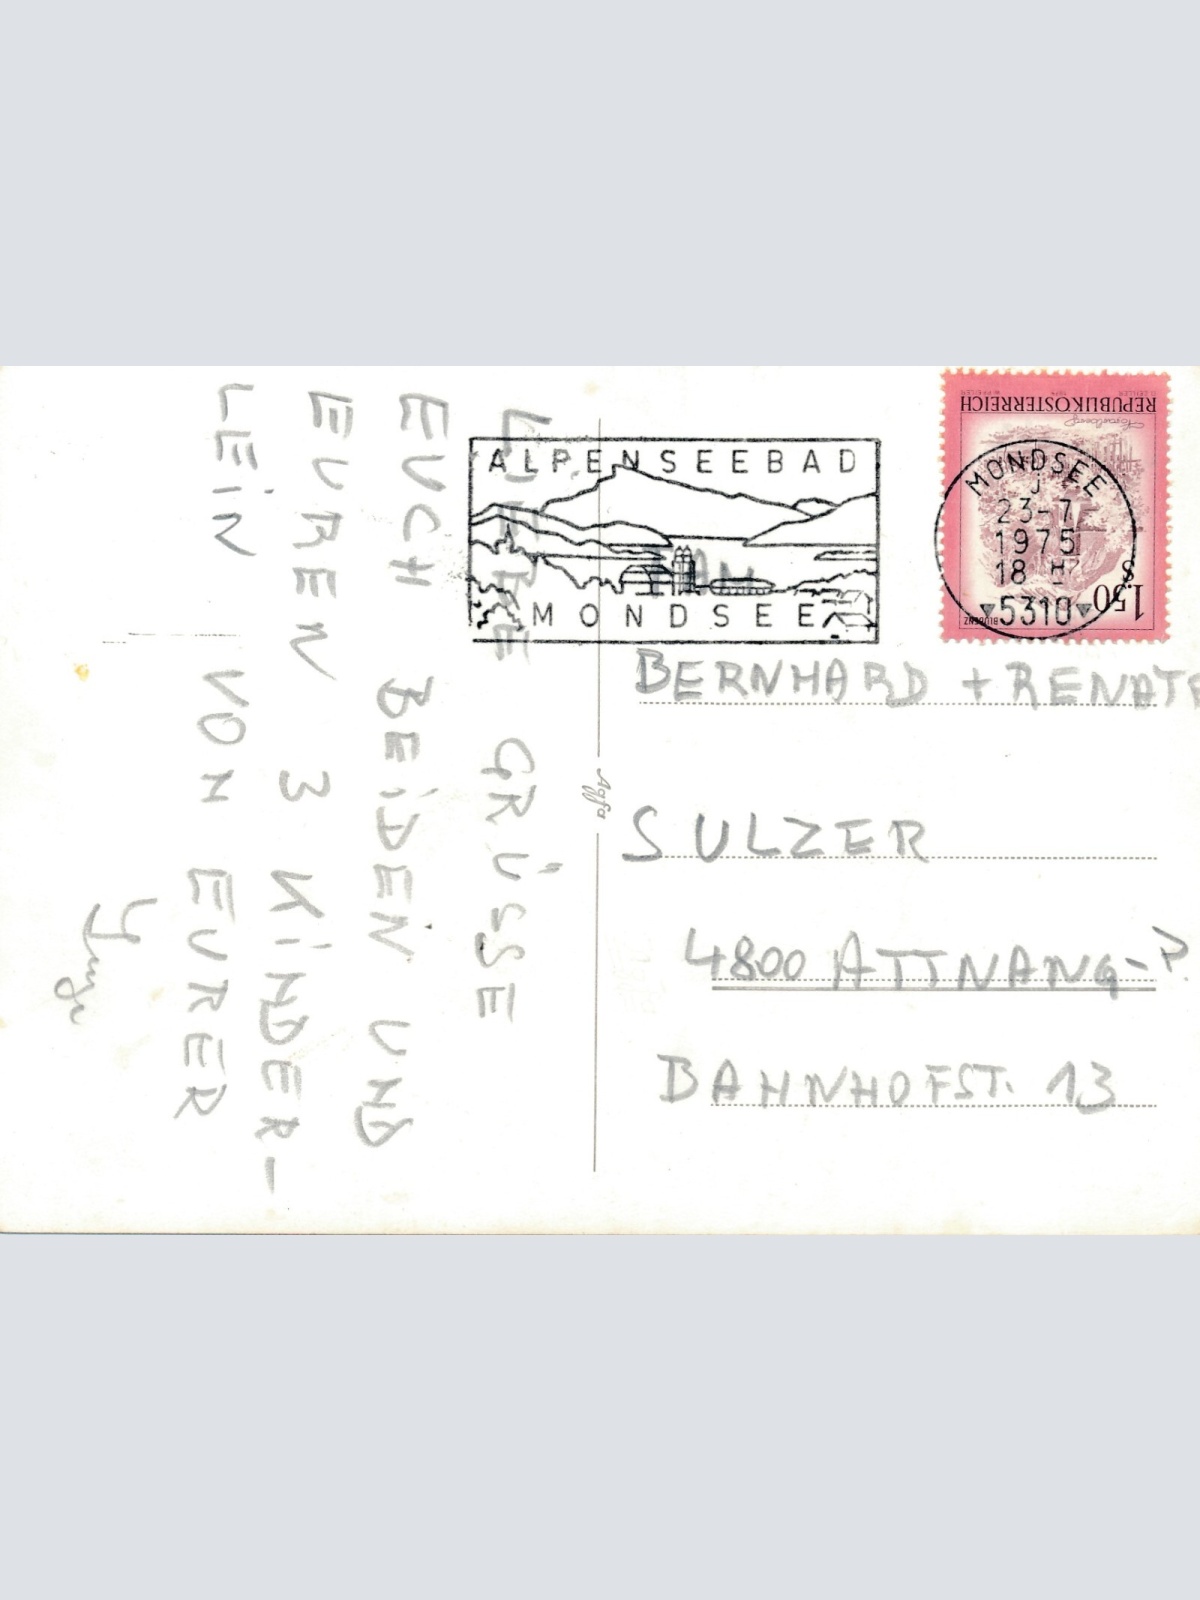 LIEBE GRÜSSE
EUCH BEIDEN UND
EUREN 3 KINDER-
LEIN VON EURER
Agfa
ALPENSEEBAD
MONDSEE
REPUBLIK ÖSTERREICH
BLUDENZ
S 1.50
MONDSEE
J
23-7
1975
18 H
5310
FAN.
BERNHARD + RENATE
SULZER
4800 ATTNANG-P.
BAHNHOFST. 13